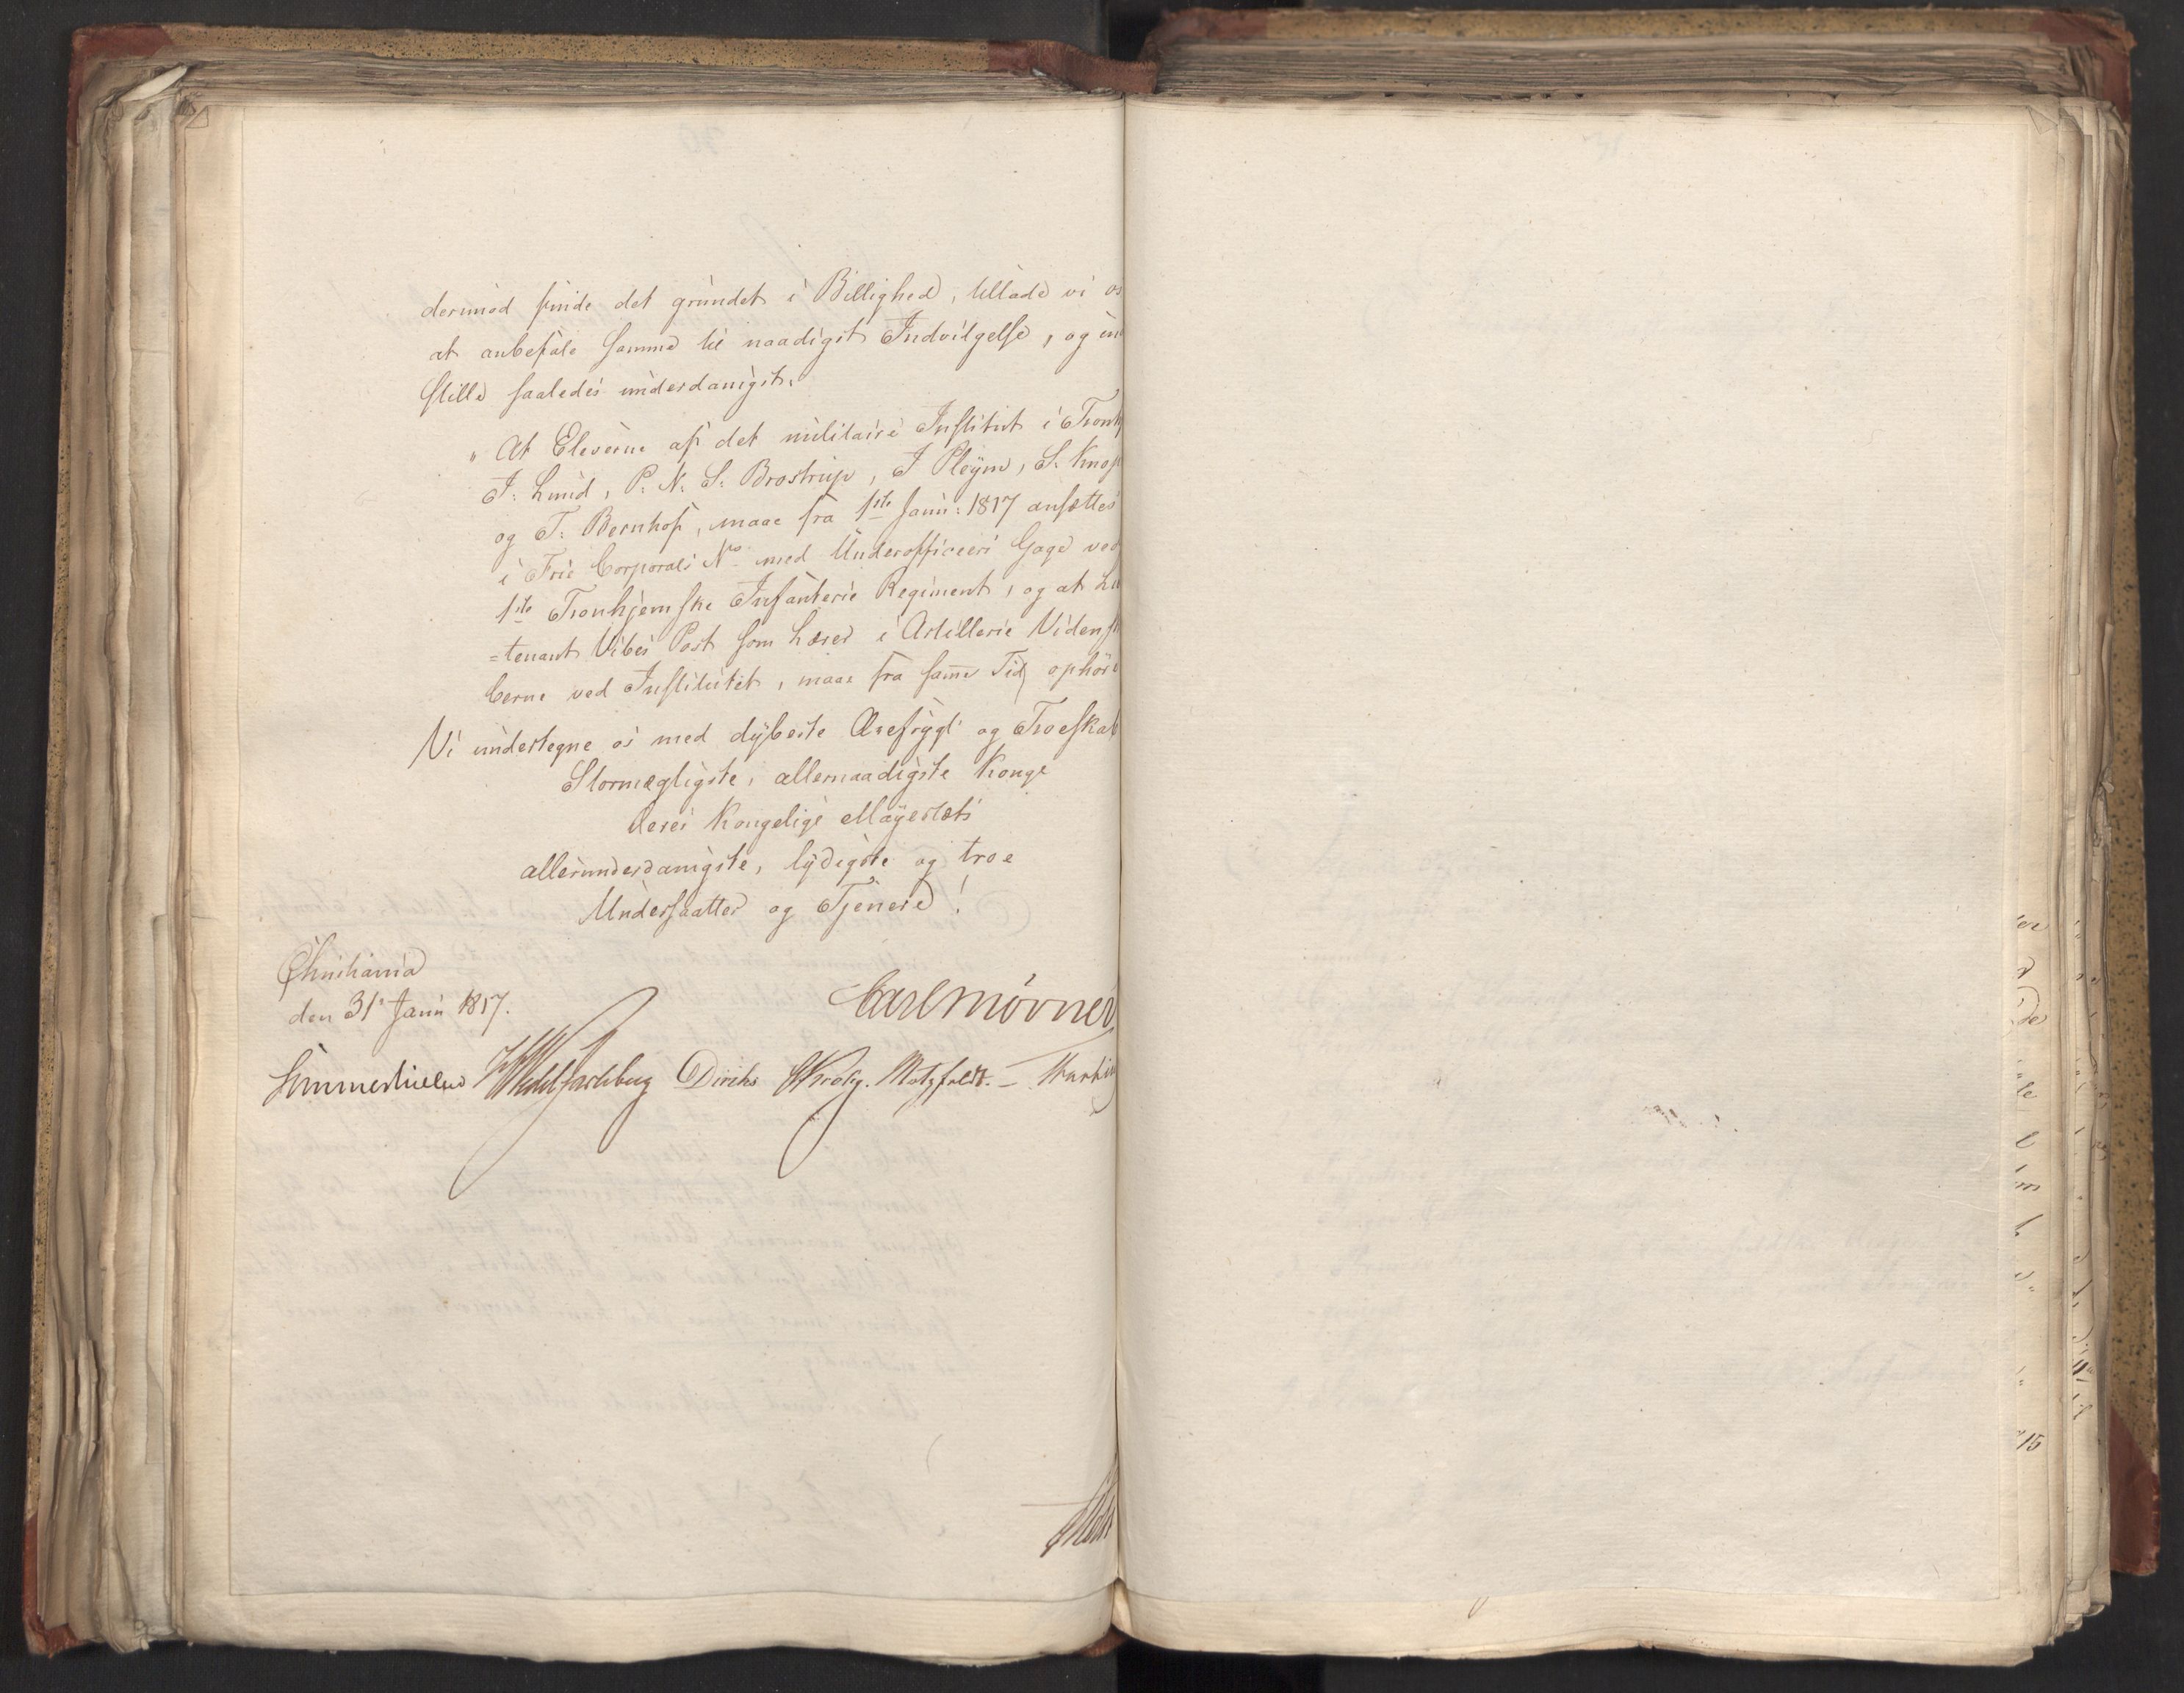 dermed finde det grundet i Billighed, tillade vi os
at anbefale samme til naadigst Indvilgelse, og ind
stille saaledes underdanigst:
" At Eleverne af det militaire Institut i Tronh
J. Lund, P. N. S. Brostrup, J Pleym, S. Knop
og T. Bernhof, maae fra 1ste Janu: 1817 ansættes
i Frie Corporals No med Underofficeers Gage ved
1ste Tronhjemske Infanterie Regiment, og at Lu
=tenant Vibes Post som Lærer i Artillerie Vidensk
berne ved Institutet, maae fra samme Tid ophøre
Vi undertegne os med dybeste Ærefrygt og Troeskab
Stormægtigste, allernaadigste Konge
Deres Kongelige Mayestæts
allerunderdanigste, lydigste og troe
Undersaatter og Tjenere!
Christiania
den 31 Janu 1817.
Carl Mörner
Sommerhielm Wedel Jarlsberg Diriks Krohg. Motzfeldt.
15